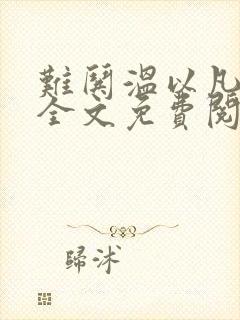 難鬨溫以凡
全文免費閱
歸沭